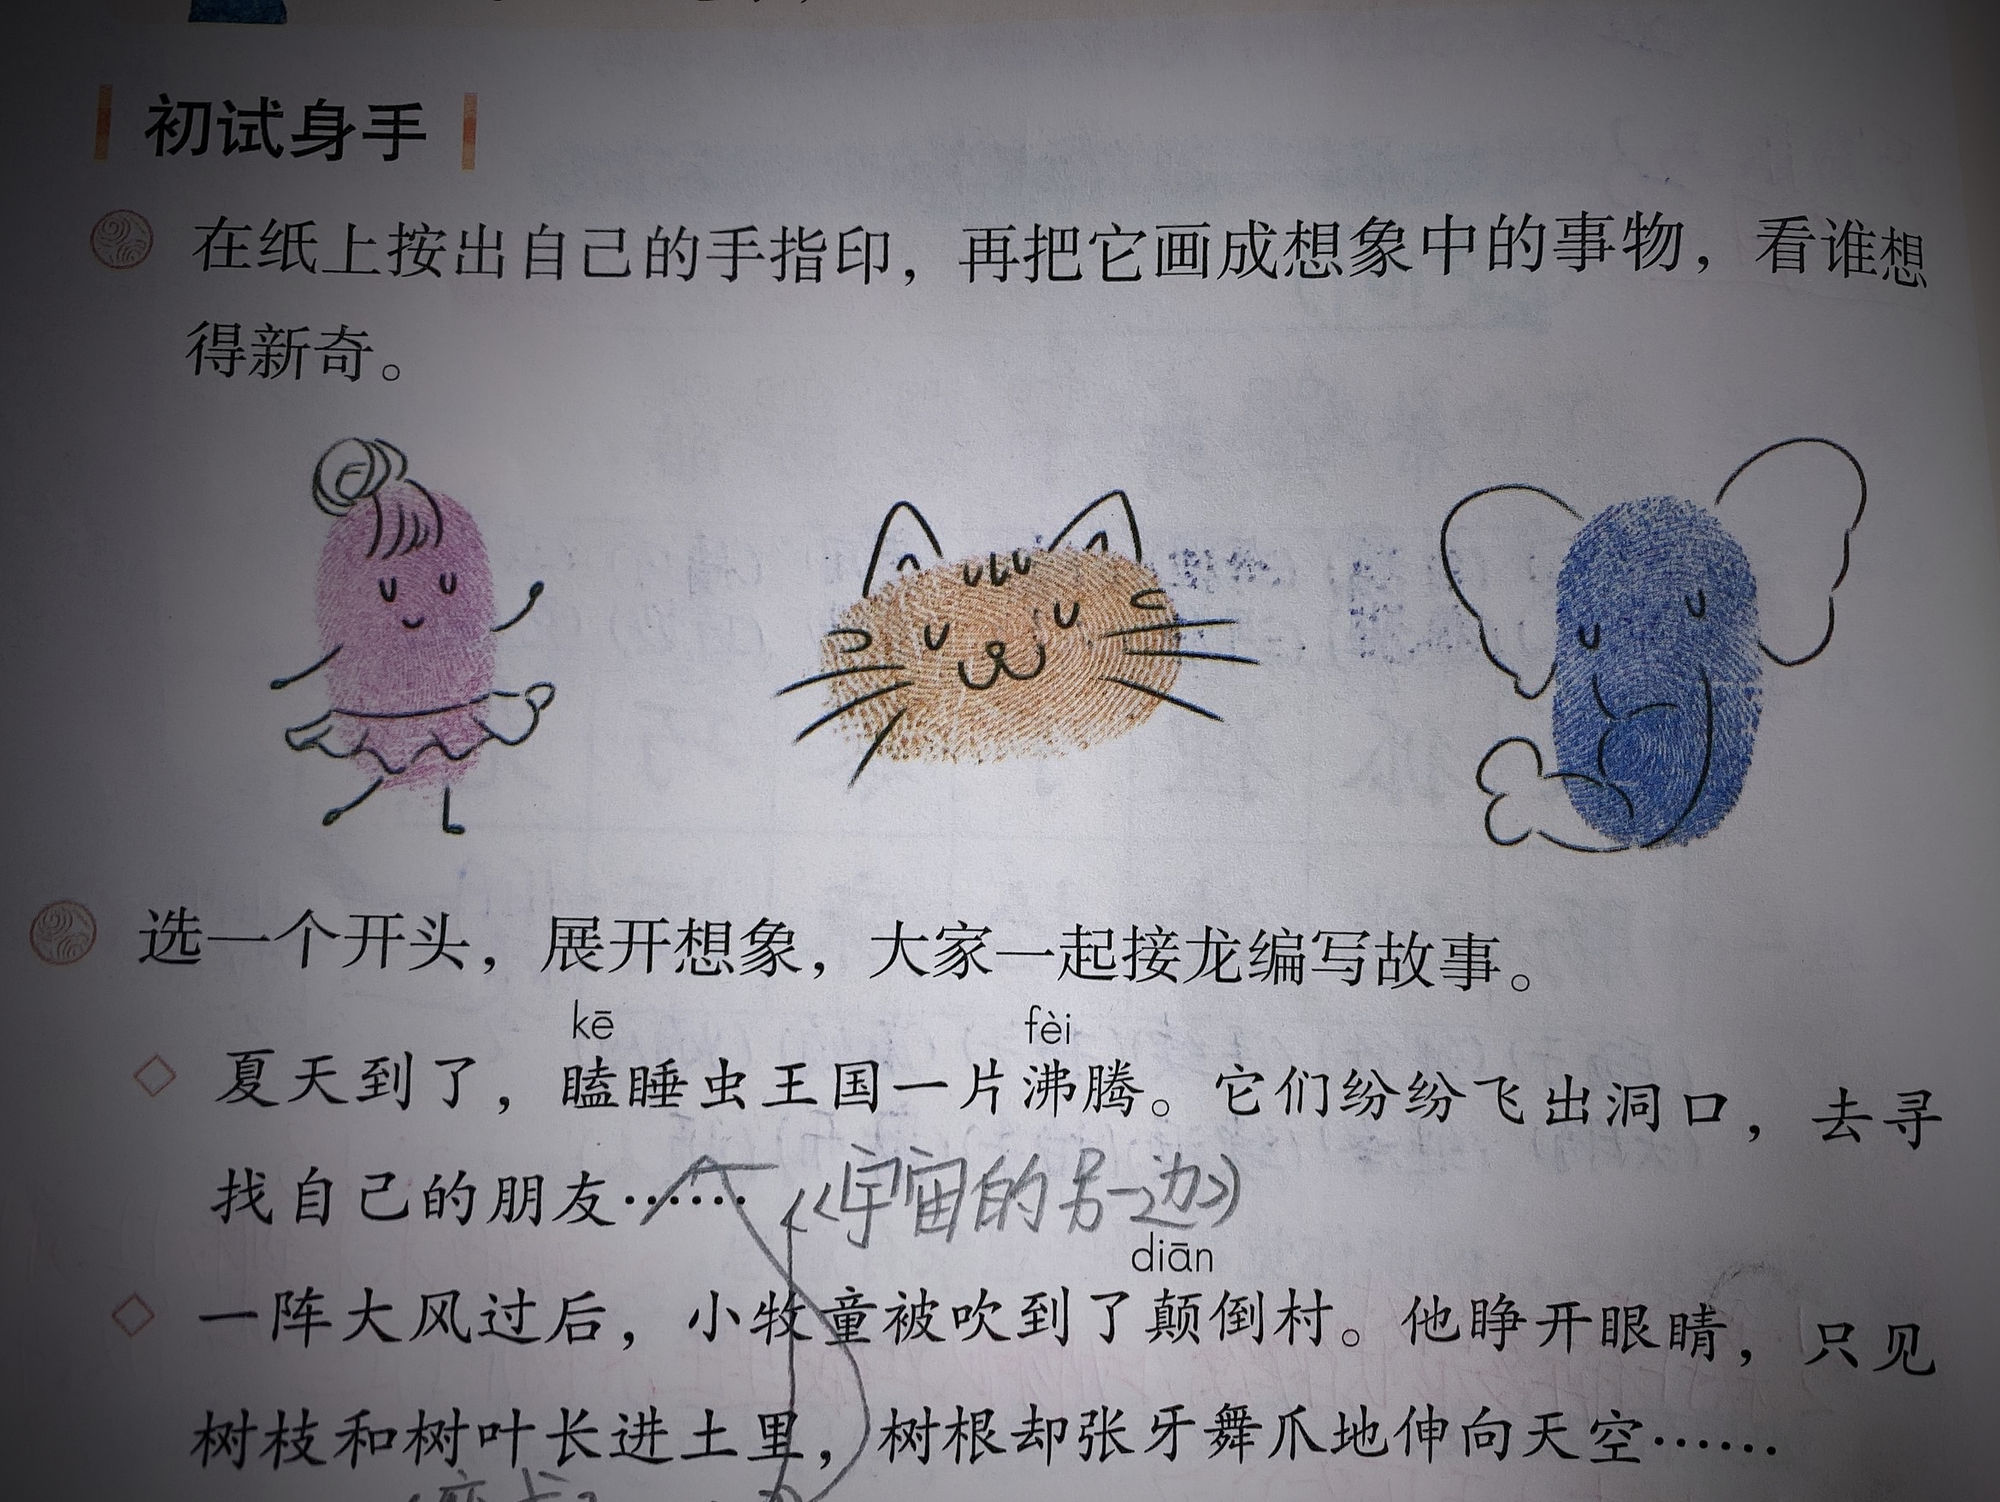 初试身手
在纸上按出自己的手指印，再把它画成想象中的事物，看谁想
得新奇。
选一个开头，展开想象，大家一起接龙编写故事。
kē fèi
夏天到了，瞌睡虫王国一片沸腾。它们纷纷飞出洞口，去寻
找自己的朋友……《宇宙的另一边》
diān
一阵大风过后，小牧童被吹到了颠倒村。他睁开眼睛，只见
树枝和树叶长进土里，树根却张牙舞爪地伸向天空……